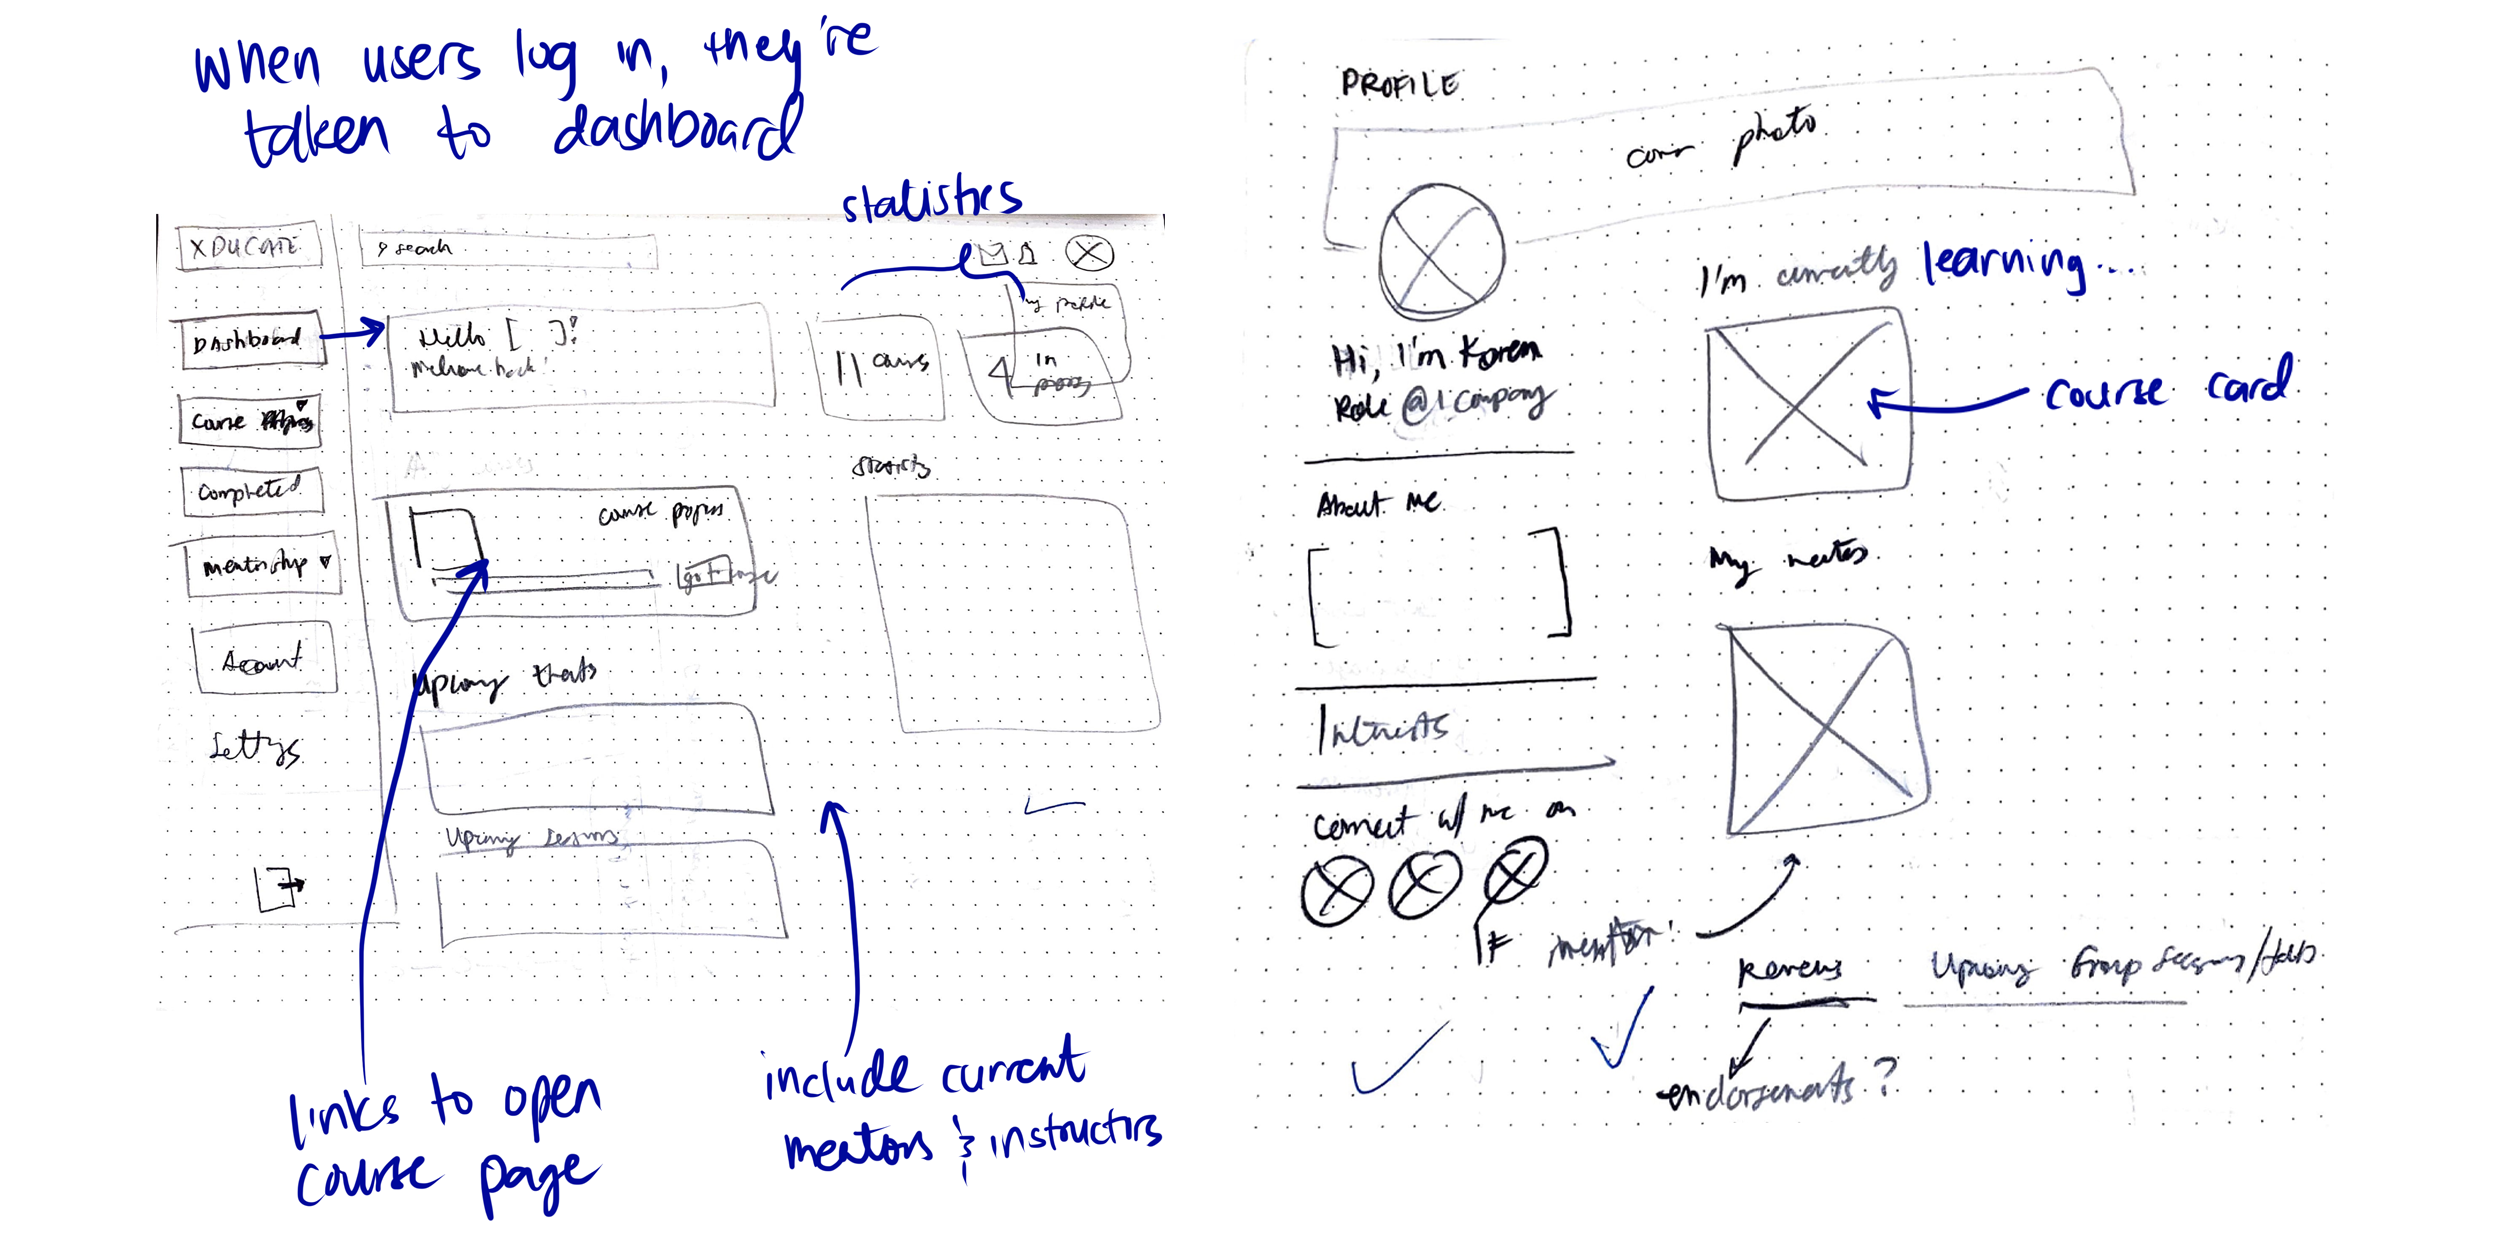 When users log in, they're
taken to dashboard
statistics
XDUCATE
search
my profile
Dashboard
Hello [ ]!
Welcome back!
11
4 In
Course
Completed
Mentorship
Account
Settings
course
go to
Upcoming
Upcoming sessions
links to open
course page
include current
mentors & instructors
PROFILE
cover photo
I'm currently learning...
course card
Hi, I'm Koren
Role @ Company
About Me
My
Interests
Connect w/ me on
If mentor:
Reviews
Upcoming Group Sessions/
endorsements?